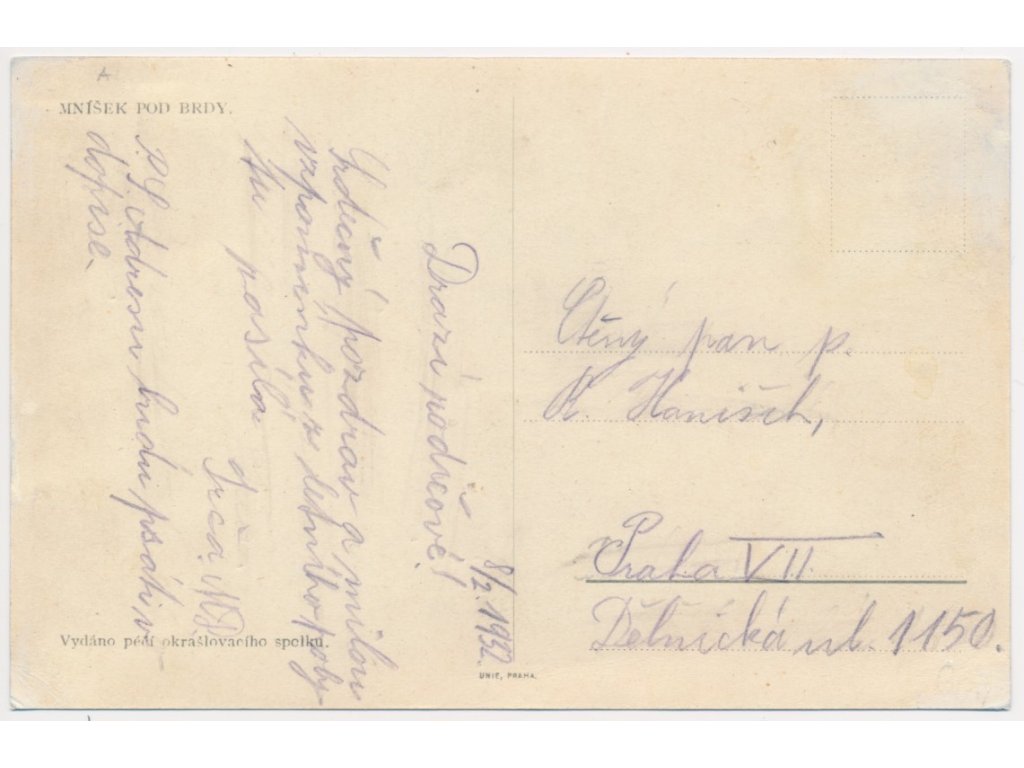 MNÍŠEK POD BRDY.
8/2. 1932.
Drazí rodičové!
Srdečný pozdrav a milou
vzpomínku z letního poby
tu posílá
Jrča.
P.S. Adresu budu psáti v
dopise.
Ctěný pan p.
K. Hanisch,
Praha VII.
Dělnická ul. 1150.
Vydáno péčí okrašlovacího spolku.
UNIE, PRAHA.